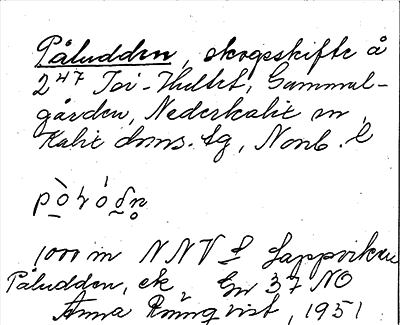 Påludden, skogsskifte å
2⁴⁷ Tor-Hultet, Gammal-
gården, Nederkalix sn,
Kalix doms. tg, Norrb. l

1000 m NNV Lappviken
Påludden, ek. Gn 37 NO
Anna Rönnqvist, 1951